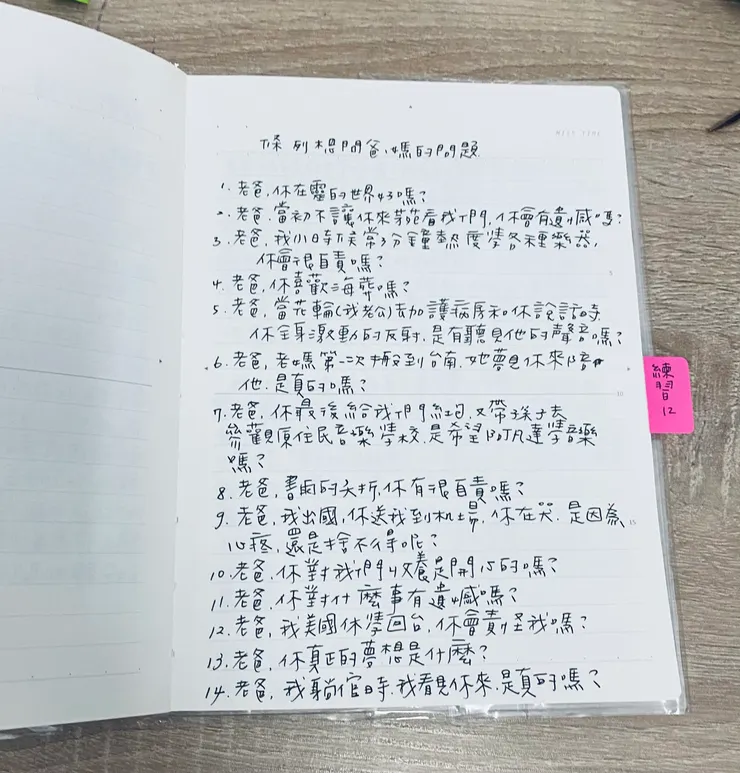 條列想問爸、媽的問題
1. 老爸,你在靈的世界好嗎?
2. 老爸,當初不讓你來看我們,你會有遺憾嗎?
3. 老爸,我小時候常3分鐘熱度學各種樂器,
你會很自責嗎?
4. 老爸,你喜歡海葬嗎?
5. 老爸,當花輪(我老公)去加護病房和你說話時
你全身激動的反射,是有聽見他的聲音嗎?
6. 老爸,老媽第一次搬到台南,她夢見你來陪
他,是真的嗎?
7. 老爸,你最後給我們紅包,又帶孫子去
參觀原住民音樂學校,是希望凱達學音樂
嗎?
8. 老爸,書雨的夭折,你有很自責嗎?
9. 老爸,我出國,你送我到机場,你在哭,是因為
心疼,還是捨不得呢?
10. 老爸,你對我們收養是開心的嗎?
11. 老爸,你對什麼事有遺憾嗎?
12. 老爸,我美國休學回台,你會責怪我嗎?
13. 老爸,你真正的夢想是什麼?
14. 老爸,我躺棺時,我看見你來,是真的嗎?
練
習
12